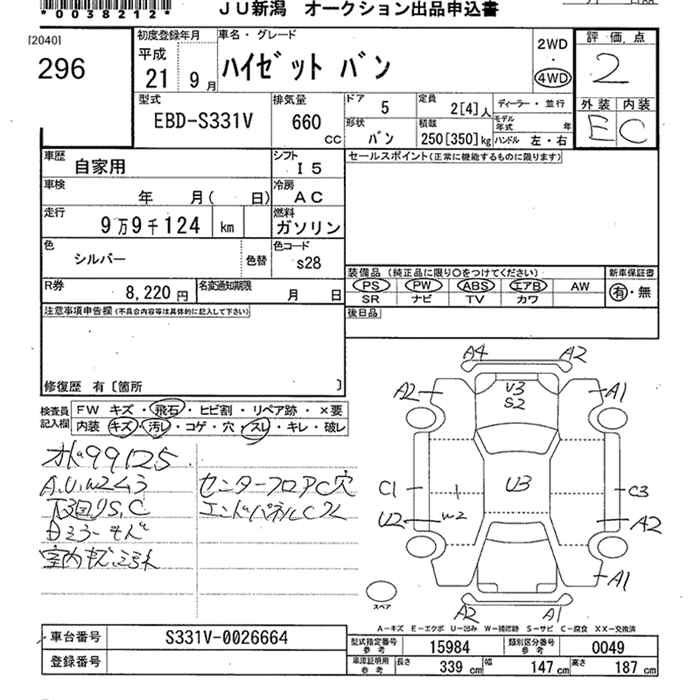 *0038212*
JU新潟 オークション出品申込書
[2040]
296
初度登録年月
平成
21 9月
車名・グレード
ハイゼット バン
2WD
4WD
評価点
2
外装 内装
E C
型式
EBD-S331V
排気量
660 cc
ドア 5
定員 2[4]人
ディーラー・並行
形状 バン
積載 250[350]kg
モデル年式 年
ハンドル 左・右
車歴 自家用
シフト I5
セールスポイント(正常に機能するものに限ります)
車検 年 月( 日)
冷房 AC
走行 9万9千124 km
燃料 ガソリン
色 シルバー 色替
色コード s28
R券 8,220円
名変通知期限 月 日
装備品(純正品に限り○をつけてください)
PS PW ABS エアB AW
SR ナビ TV カワ
新車保証書
有・無
注意事項申告欄(不具合内容等は具体的に記入して下さい)
後日品
修復歴 有〔箇所 〕
検査員記入欄
FW キズ・飛石・ヒビ割・リペア跡・×要
内装 キズ・汚レ・コゲ・穴・スレ・キレ・破レ
99125
A.U.W243
下回りS.C
センターフロアC穴
エンドパネルC
A4 A2
A2 A1
U3
S2
C1 U3 C3
U2 W2 A2
A1
A2 A1
スペア
A-キズ E-エクボ U-凹み W-補修跡 S-サビ C-腐食 XX-交換済
車台番号 S331V-0026664
登録番号
型式指定番号 参考 15984
類別区分番号 参考 0049
車庫証明用 参考 長さ 339 cm 幅 147 cm 高さ 187 cm